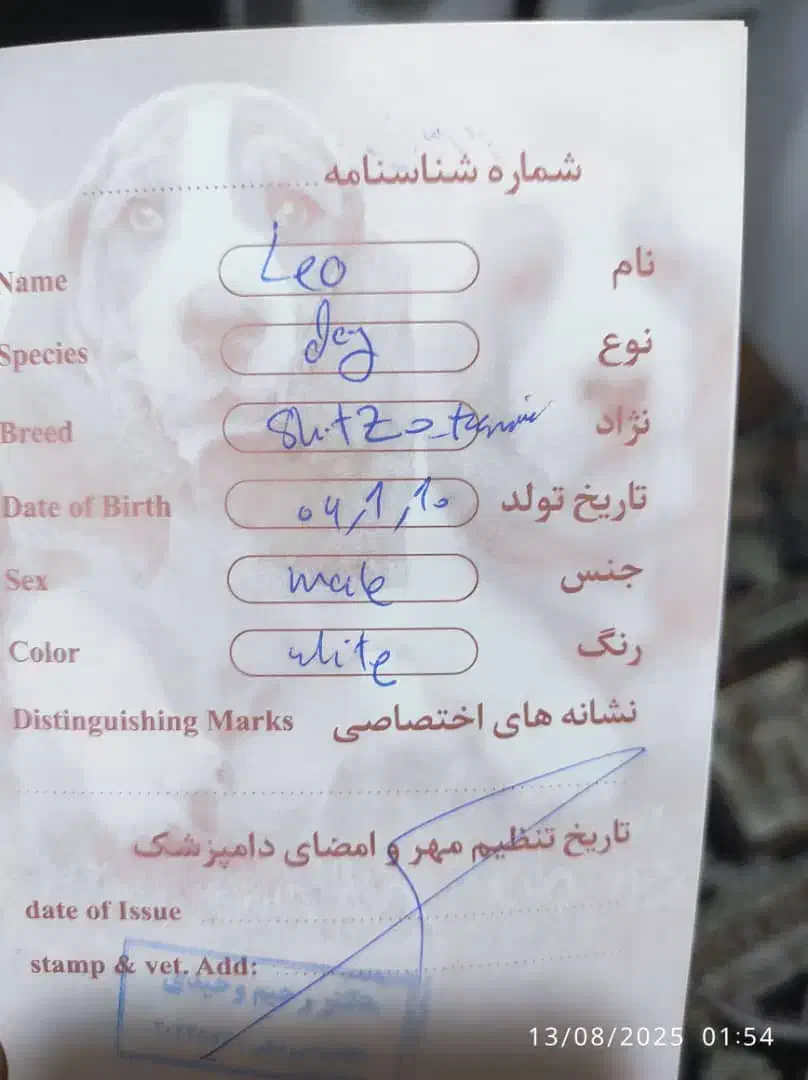 شماره شناسنامه
Name Leo نام
Species dog نوع
Breed Shitzo نژاد
Date of Birth 04,1,10 تاریخ تولد
Sex male جنس
Color white رنگ
Distinguishing Marks نشانه های اختصاصی
تاریخ تنظیم مهر و امضای دامپزشک
date of Issue
stamp & vet. Add:
13/08/2025 01:54